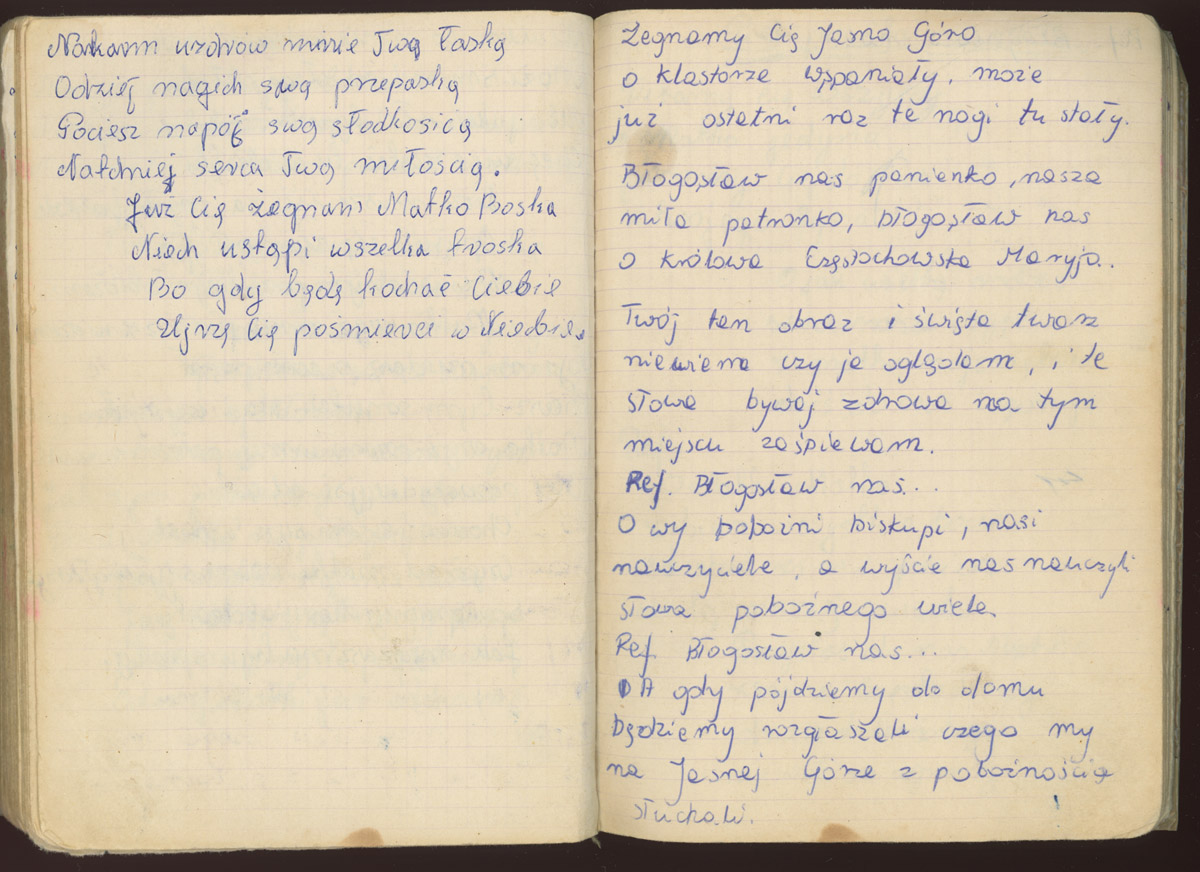 Nakarm uzdrów mnie Twą Łaską
Odziej nagich swą przepaską
Pociesz napój swą słodkosicą
Natchniej serca Twą miłością.
Już Cię żegnam Matko Boska
Niech ustąpi wszelka troska
Bo gdy będę kochać Ciebie
Ujrzę Cię pośmierci w Niebie.
Żegnamy Cię Jasno Góro
o klastorze wspaniały, może
już ostatni raz te nogi tu stały.
Błogosław nas panienko, nasza
miła patronko, błogosław nas
O królowa Częstochowska Maryja.
Twój ten obraz i święta twarz
niewiem czy ja oglądam, i te
słowa bywaj zdrowa na tym
miejscu zaśpiewam.
Ref. Błogosław nas...
O wy pobożni biskupi, nasi
nauczyciele, a wyście nas nauczyli
słowa pobożnego wiele.
Ref. Błogosław nas...
A gdy pójdziemy do domu
będziemy rozgłaszali czego my
na Jasnej Górze z pobożnością
słuchali.